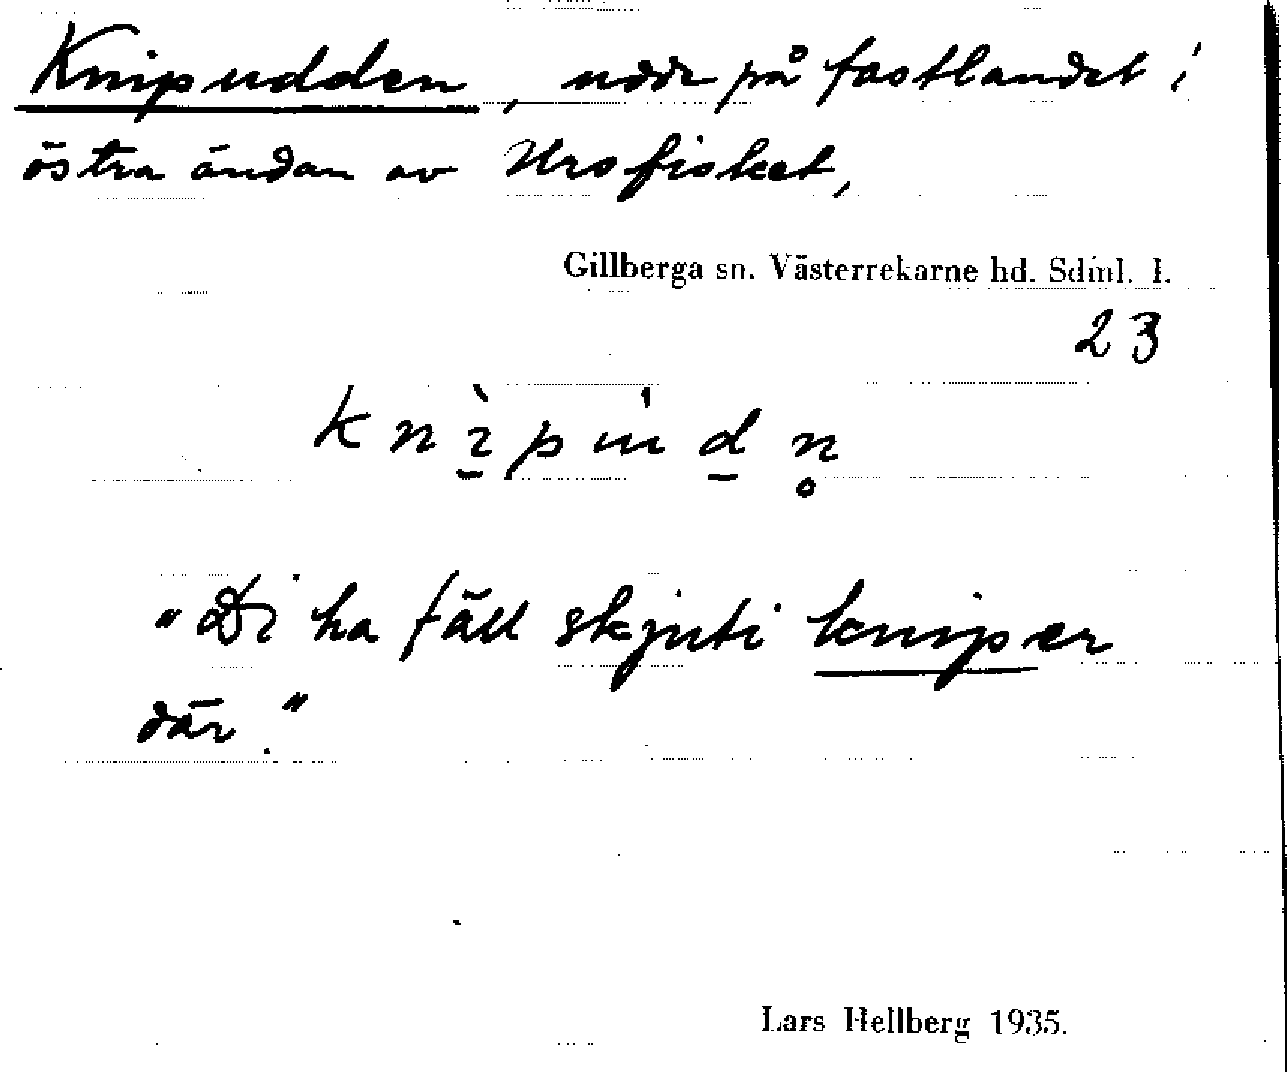 Knipudden, udde på fastlandet i
östra ändan av Urofisket,
Gillberga sn. Västerrekarne hd. Sdml. l.
23
"Di ha fäll skjuti kniper
där."
Lars Hellberg 1935.